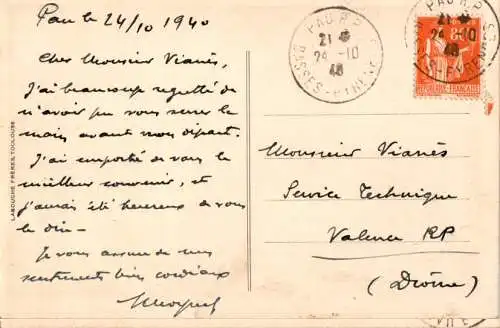 Pau le 24/10 1940
Cher Monsieur Vianès,
J'ai beaucoup regretté de
n'avoir pu vous serrer la
main avant mon départ.
J'ai emporté de vous le
meilleur souvenir, et
j'aurais été heureux de vous
le dire -
Je vous assure de mes
sentiments bien cordiaux
LABOUCHE FRÈRES, TOULOUSE
PAU R.P.
21
24 -10
40
BASSES-PYRENEES
PAU R.P.
21
24 -10
40
BASSES-PYRENEES
80
REPUBLIQUE FRANÇAISE
Monsieur Vianès
Service Technique
Valence RP
(Drôme)